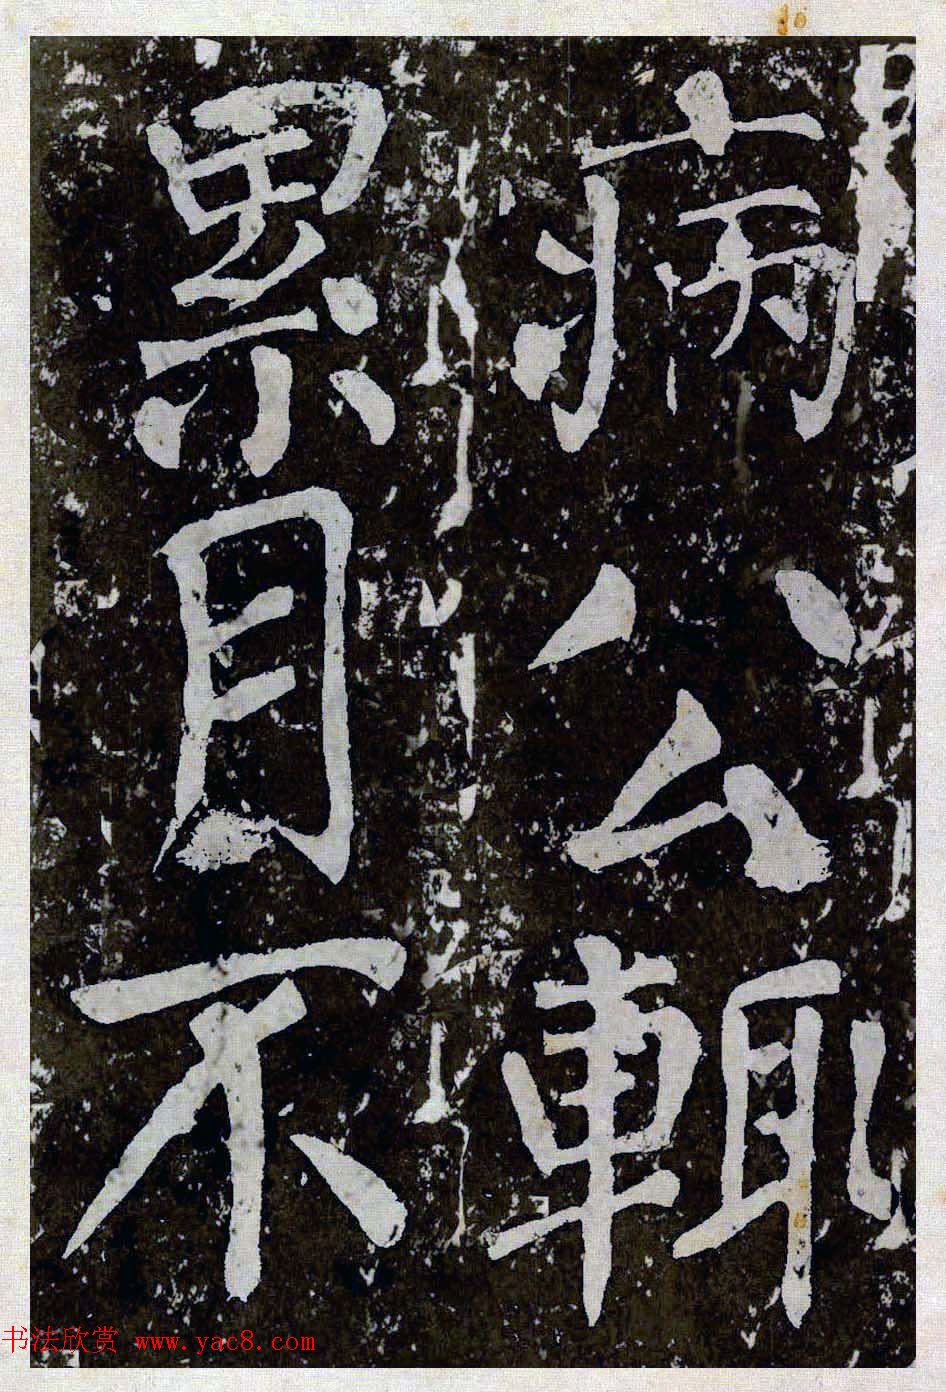 病公輒
累月不
书法欣赏 www.yac8.com